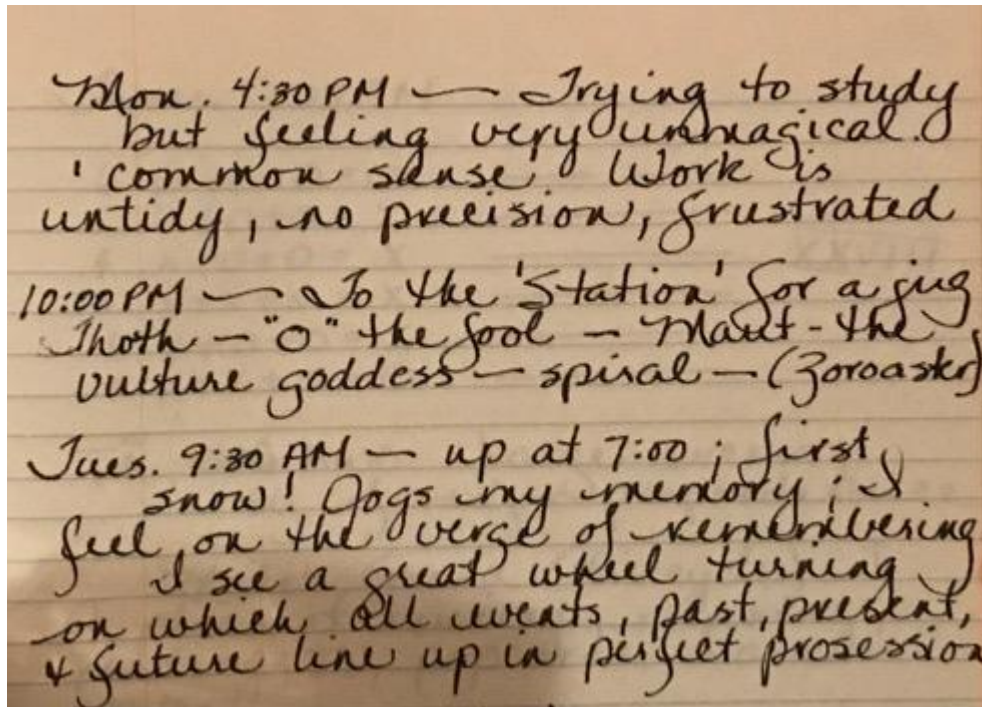 Mon. 4:30 PM — Trying to study
but feeling very unmagical.
'common sense' Work is
untidy, no precision, frustrated
10:00 PM — To the 'Station' for a jug
Thoth — "O" the fool — Maut - the
vulture goddess — spiral — (Zoroaster)
Tues. 9:30 AM — up at 7:00 ; first
snow! Jogs my memory ; I
feel on the verge of remembering
I see a great wheel turning
on which all events, past, present,
& future line up in perfect prosession